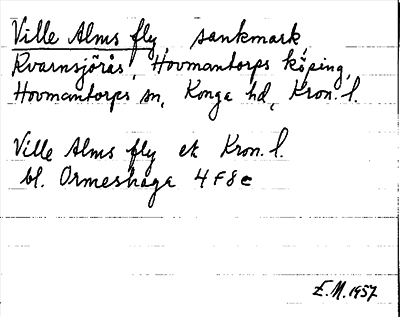 Ville Alms fly, sankmark,
Kvarnsjörås, Hovmantorps köping,
Hovmantorps sn, Konga hd, Kron. l.
Ville Alms fly ek Kron. l.
bl. Ormeshaga 4F8c
E.M. 1957